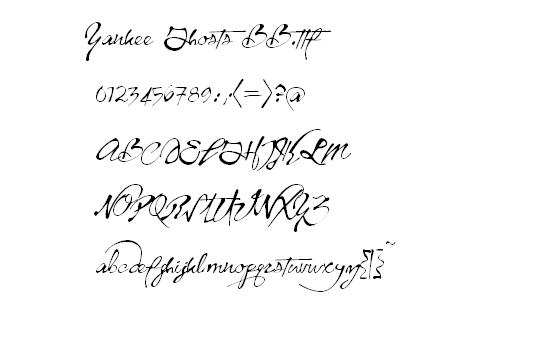 Yankee Ghosts BB.ttf
0123456789:;<=>?@
ABCDEFGHIJKLM
NOPQRSTUVWXYZ
abcdefghijklmnopqrstuvwxyz{|}~